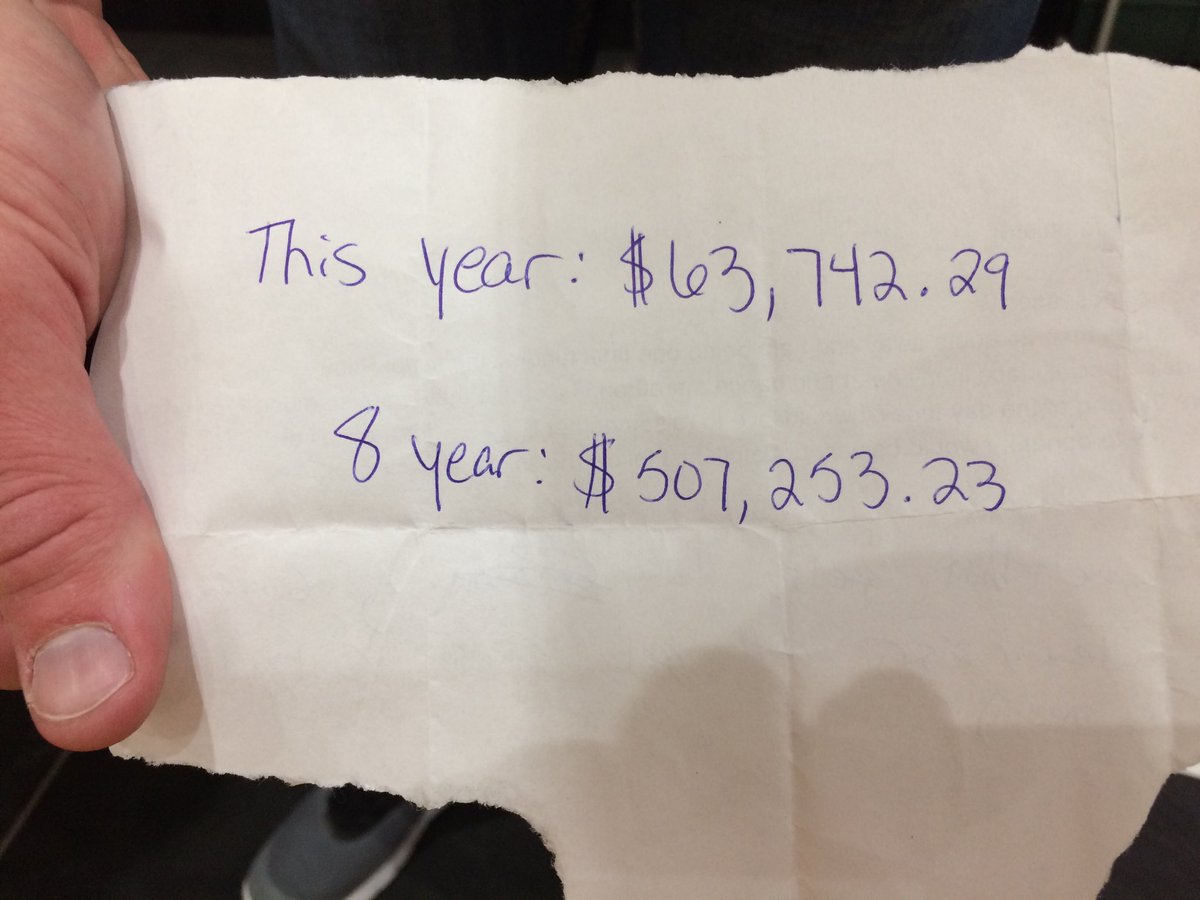 This year: $63,742.29
8 year: $507,253.23